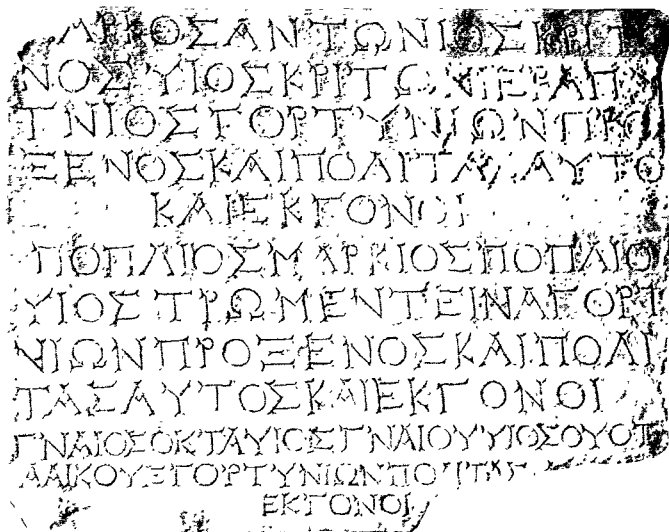 ΜΑΡΚΟΣΑΝΤΩΝΙΟΣΚΡΙΤΩ
ΝΟΣΥΙΟΣΚΡΙΤΩΝΙΕΡΑΠΥ
ΤΝΙΟΣΓΟΡΤΥΝΙΩΝΠΡΟ
ΞΕΝΟΣΚΑΙΠΟΛΙΤΑΣΑΥΤΟ
ΚΑΙΕΚΓΟΝΟΙ
ΠΟΠΛΙΟΣΜΑΡΚΙΟΣΠΟΠΛΙΟ
ΥΙΟΣΤΡΩΜΕΝΤΕΙΝΑΓΟΡΤ
ΝΙΩΝΠΡΟΞΕΝΟΣΚΑΙΠΟΛΙ
ΤΑΣΑΥΤΟΣΚΑΙΕΚΓΟΝΟΙ
ΓΝΑΙΟΣΟΚΤΑΥΙΟΣΓΝΑΙΟΥΥΙΟΣΟΥΟΤ
ΓΟΡΤΥΝΙΩΝ
ΕΚΓΟΝΟΙ